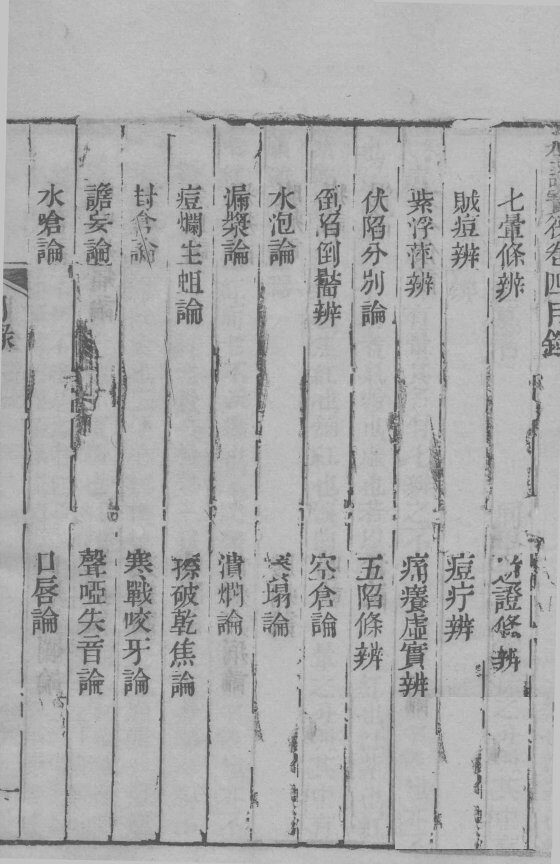 卷四目錄
七暈條辨
證條辨
賊痘辨
痘疔辨
紫浮萍辨
痛癢虛實辨
伏陷分別論
五陷條辨
倒陷倒靨辨
空倉論
水泡論
塌論
漏漿論
潰爛論
痘爛生蛆論
擦破乾焦論
封倉論
寒戰咬牙論
譫妄論
聲啞失音論
水嗆論
口唇論
目錄